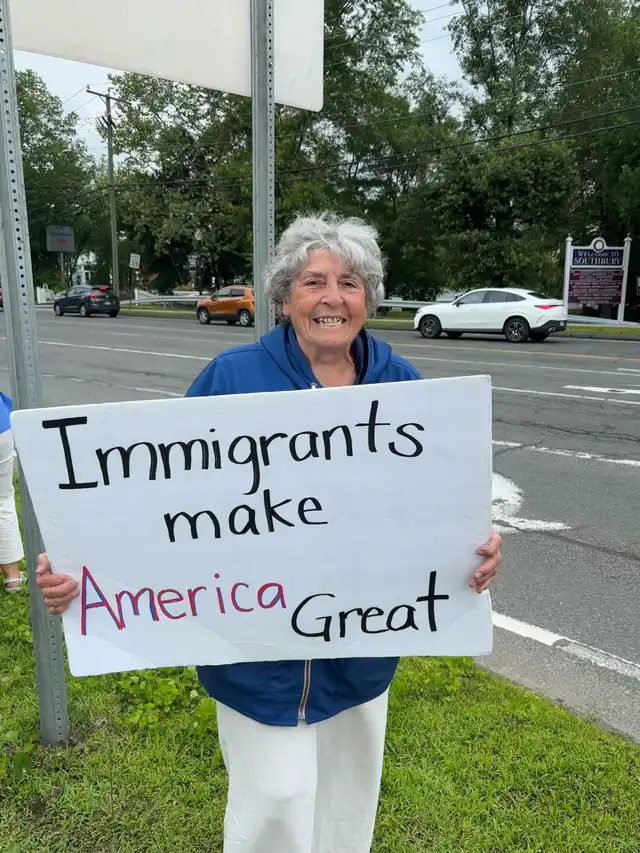 Immigrants
make
America Great
WELCOME TO
SOUTHBURY